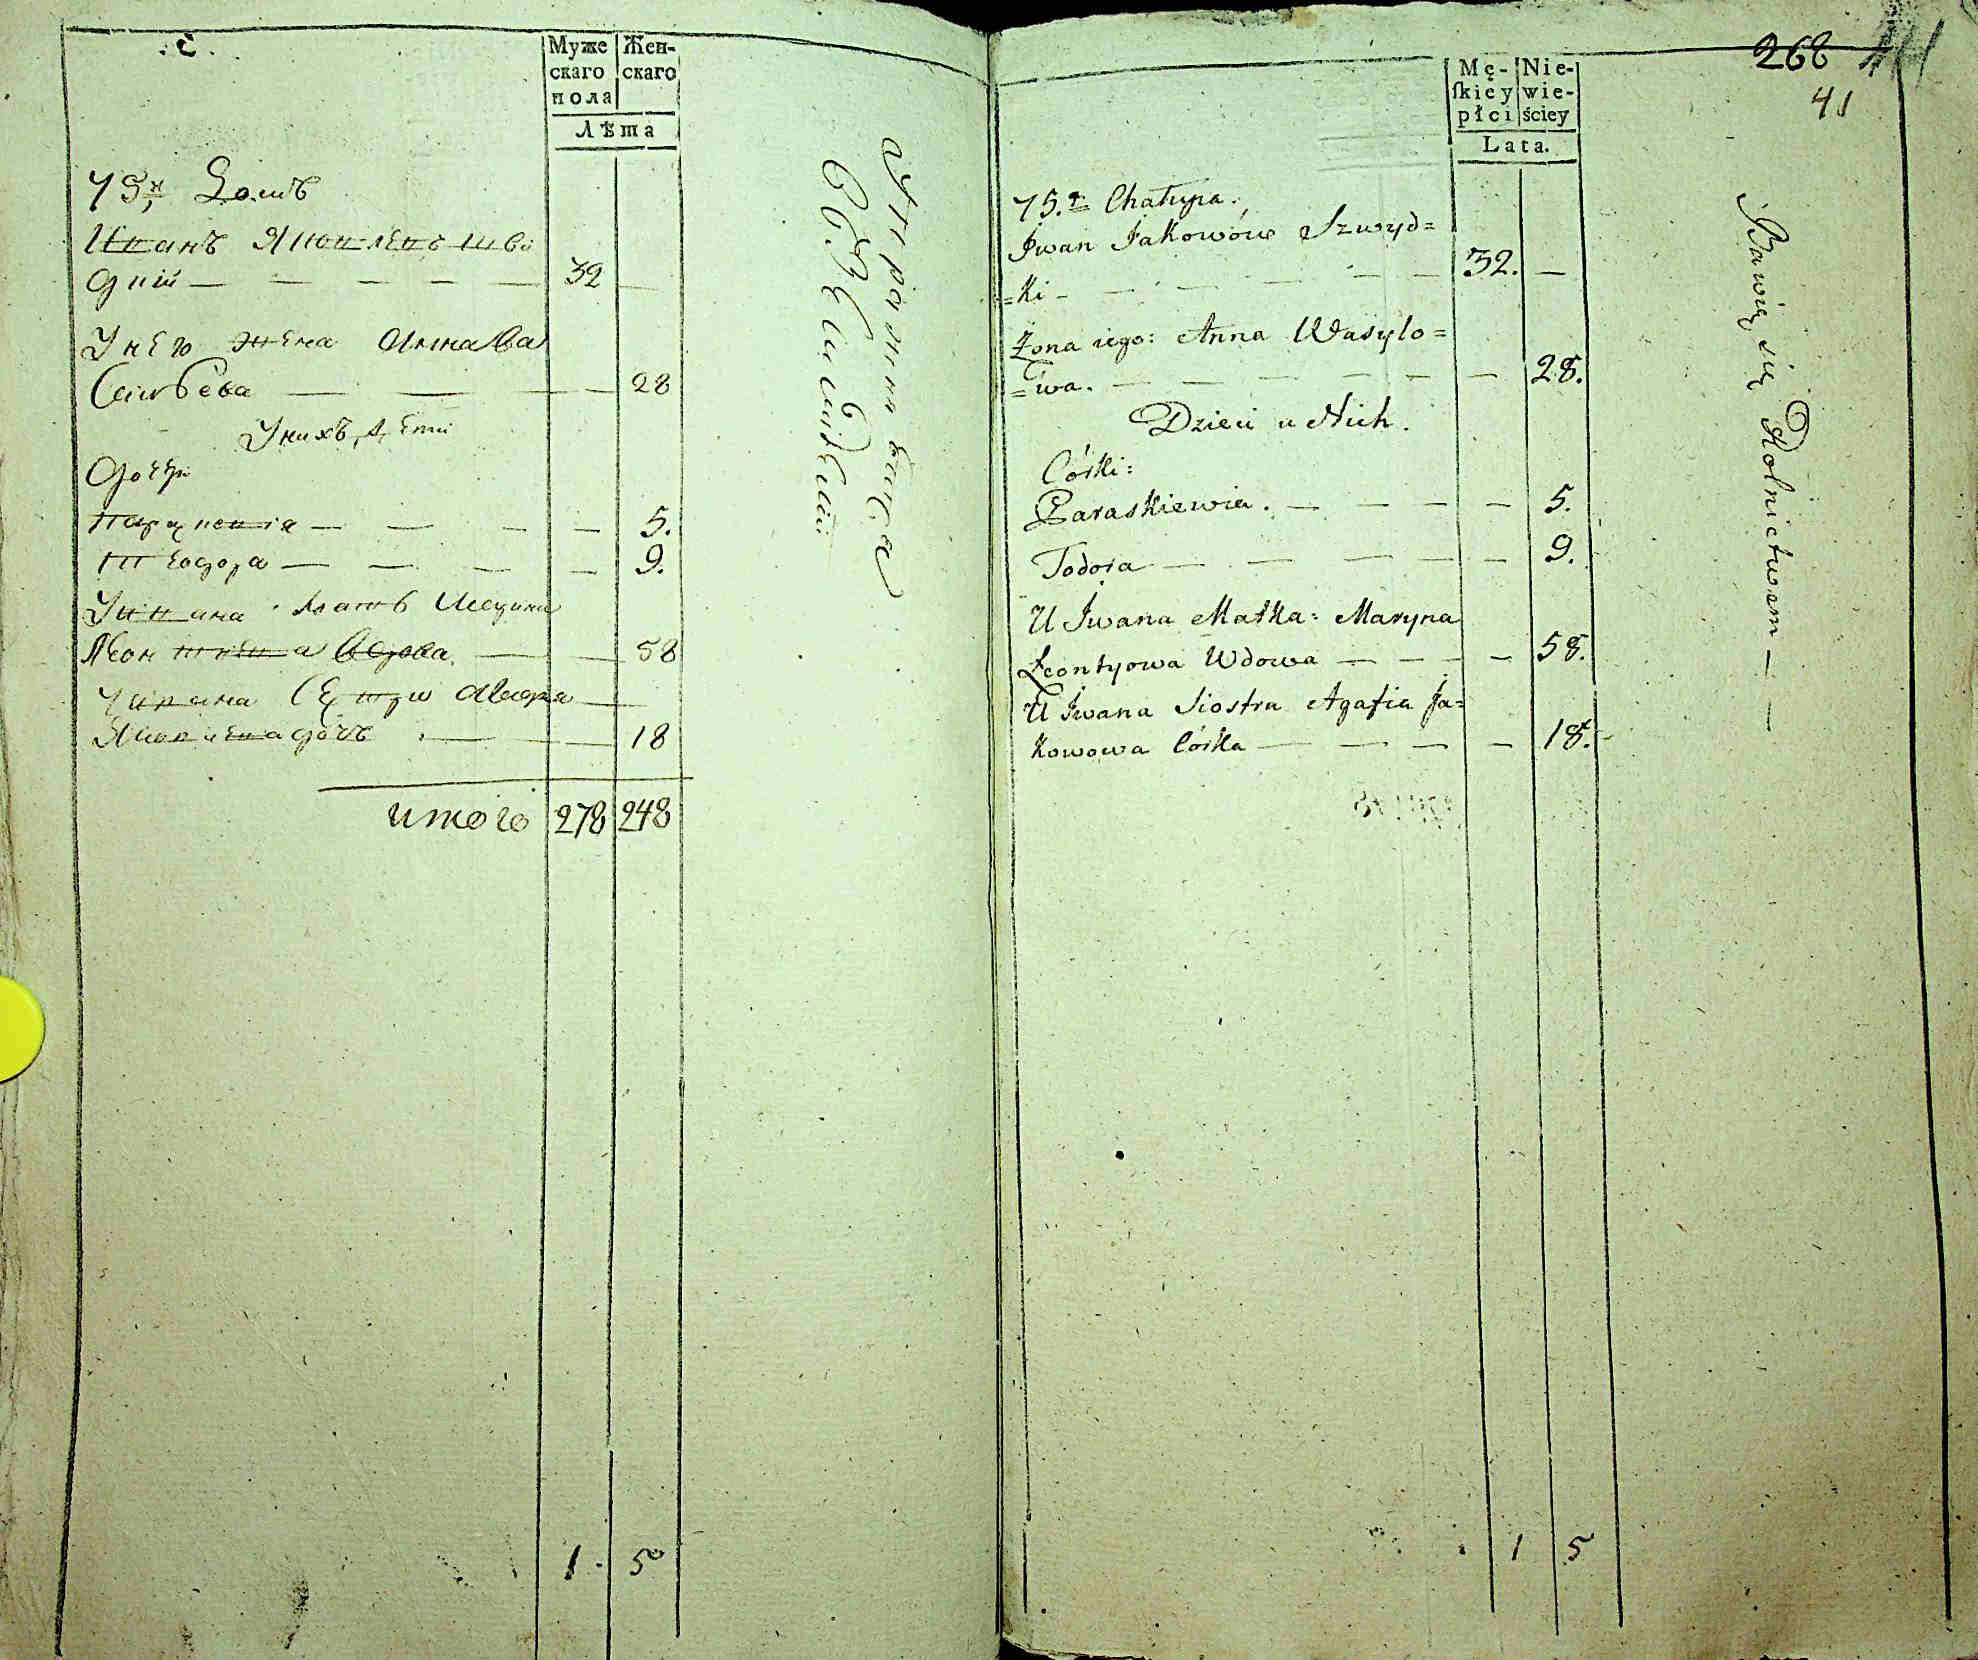 Муже
скаго
пола
Жен-
скаго
Лѣта
75й Домъ
Иванъ Яковлевъ Шви
дкій — — — — — 32 —
У него жена Анна Ва
сильева — — — 28
У нихъ дѣти
Дочери
Парасковія — — — — 5.
Теодора — — — — 9.
У Ивана мать Марина
Леонтьева вдова — — 58
У Ивана сестра
Яковлева дочь — — 18
итого 278 248
1. 5
Упражняются
268
41
Mę-
ſkiey
płci
Nie-
wie-
ściey
Lata.
75.ta Chałupa.
Jwan Jakowów Szwyd=
=ki — — — — — 32. —
Żona iego: Anna Wasylo=
=wa. — — — — — — 28.
Dzieci u Nich.
Córki:
Paraskiewia. — — — — 5.
Todora — — — — — 9.
U Jwana Matka: Maryna
Leontyowa Wdowa — — — — 58.
U Jwana Siostra Agafia Ja=
kowowa Córka — — — — 18.
1 5
Bawią się Rolnictwem — —